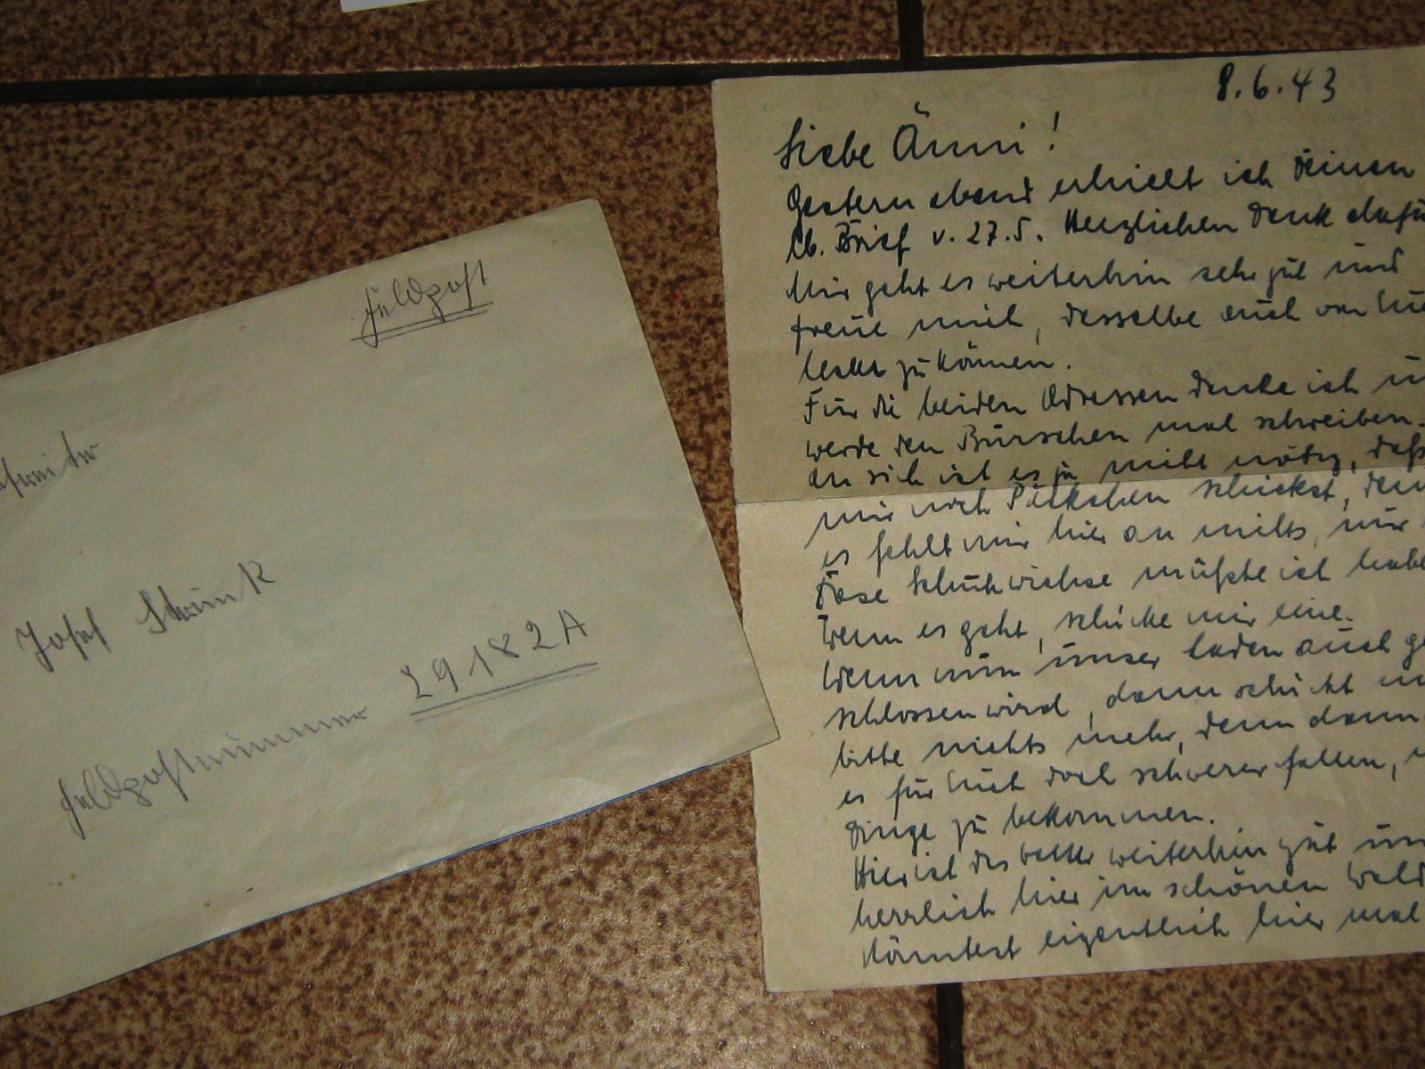 Feldpost
Josef
Feldpostnummer 29182A
8.6.43
Liebe Änni!
Gestern abend erhielt ich deinen
lb. Brief v. 27.5. Herzlichen Dank dafü
Mir geht es weiterhin sehr gut und
freue mich, dasselbe auch von Eu
lesen zu können.
Für die beiden Adressen danke ich u
werde den Burschen mal schreiben.
An sich ist es ja nicht nötig, daß
mir noch Päckchen schickst, den
es fehlt mir hier an nichts, nur
Dose Schuhwichse müßte ich habe
Wenn es geht, schicke mir eine.
Wenn nun unser Laden auch ge
schlossen wird, dann schickt m
bitte nichts mehr, denn dann
es für Euch doch schwerer fallen,
Dinge zu bekommen.
Hier ist das Wetter weiterhin gut un
herrlich hier im schönen Wald
könntest eigentlich hier mal